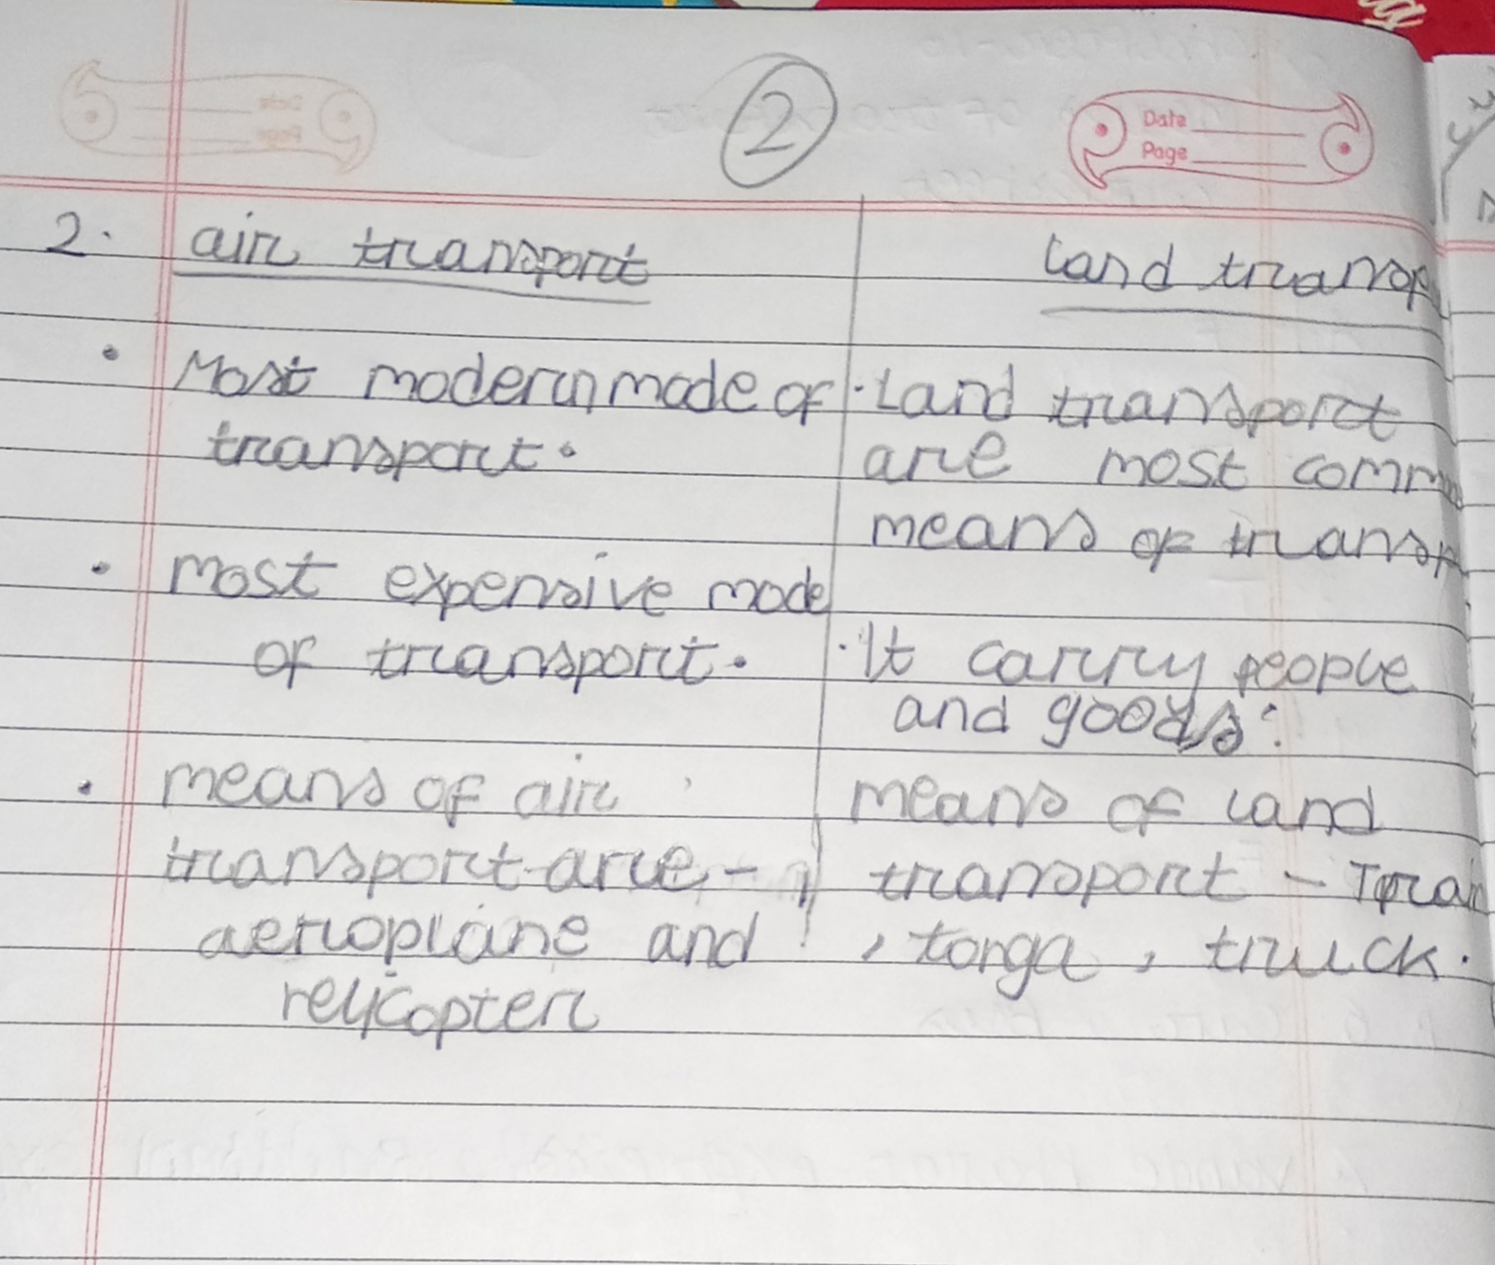 2
Date
Page
2. air transport
• Most modern mode of
transport.
• most expensive mode
of transport.
• means of air
transport are -
aeroplane and
relicopter
land transp
• Land transport
are most comm
means of transp
• It carry people
and goods.
means of land
transport -
, tonga, truck.